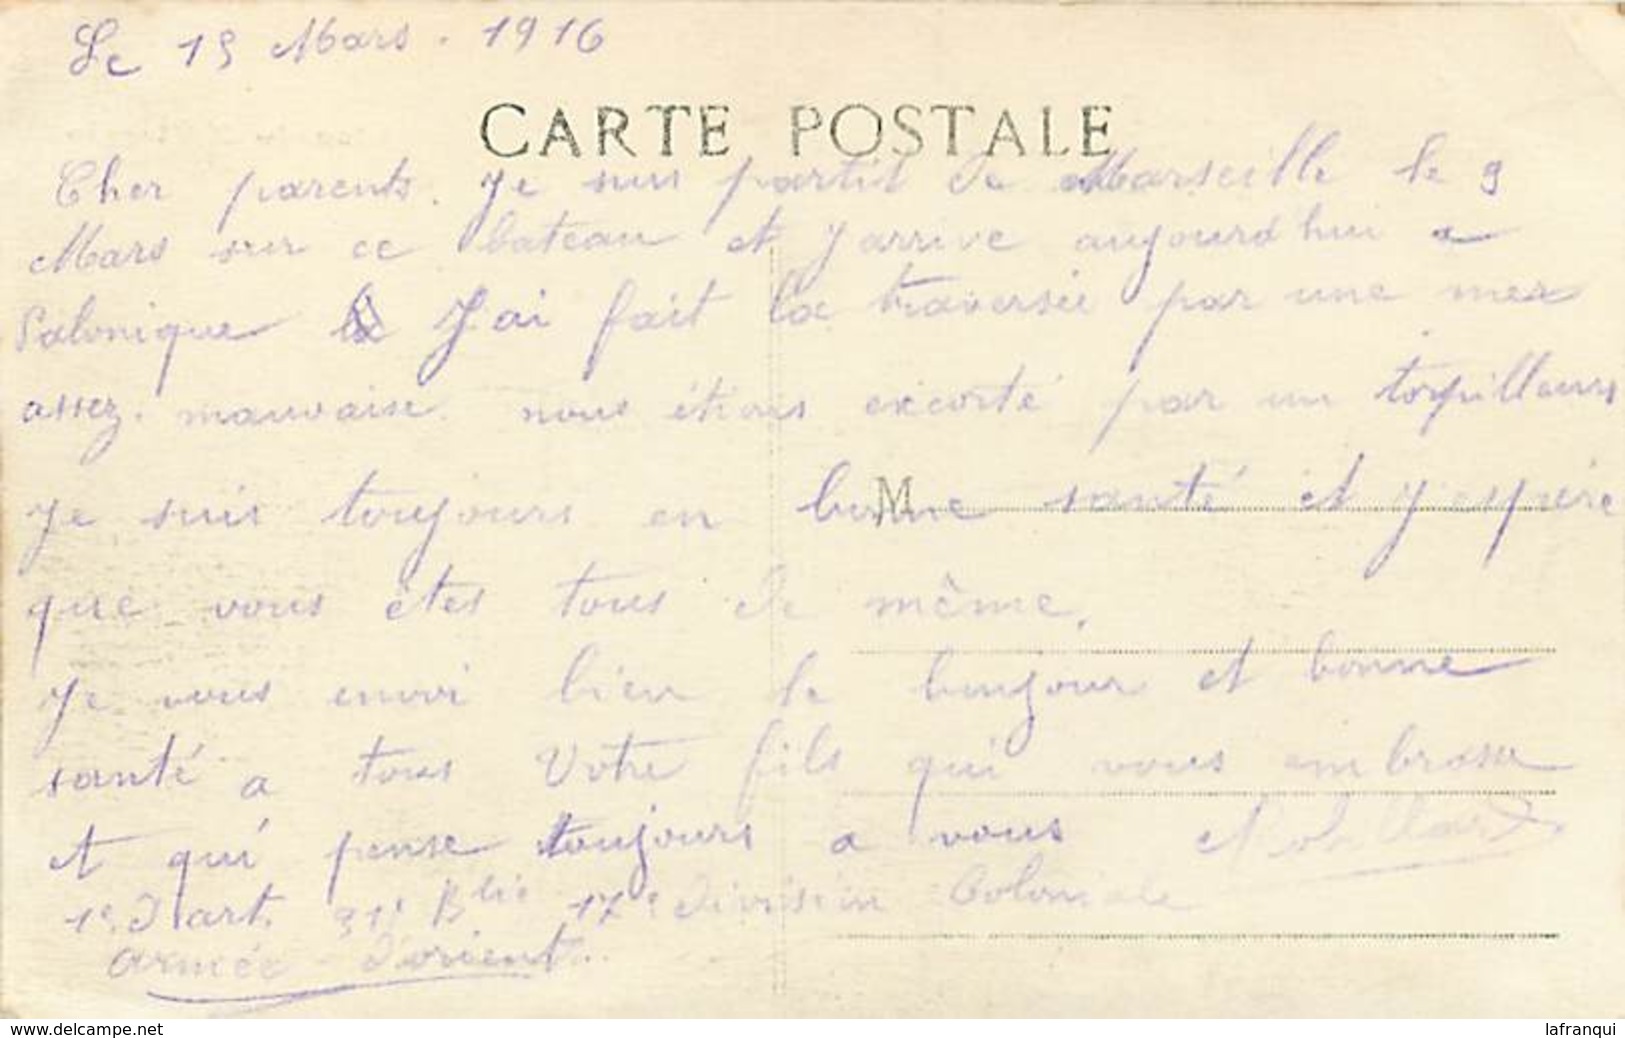 Le 15 Mars. 1916
CARTE POSTALE
Cher parents. Je suis partit de Marseille le 9
Mars sur ce bateau et J'arrive aujourd'hui a
Salonique J'ai fait la traversée par une mer
assez. mauvaise. nous étions excorté par un torpilleurs
M
Je suis toujours en bonne santé et J'espère
que vous êtes tous de même.
Je vous envoi bien le bonjour et bonne
santé a tous Votre fils qui vous embrasse
et qui pense toujours a vous
1e. d'art. 31e Btrie 17e division Coloniale
armée d'orient.
www.delcampe.net
lafranqui